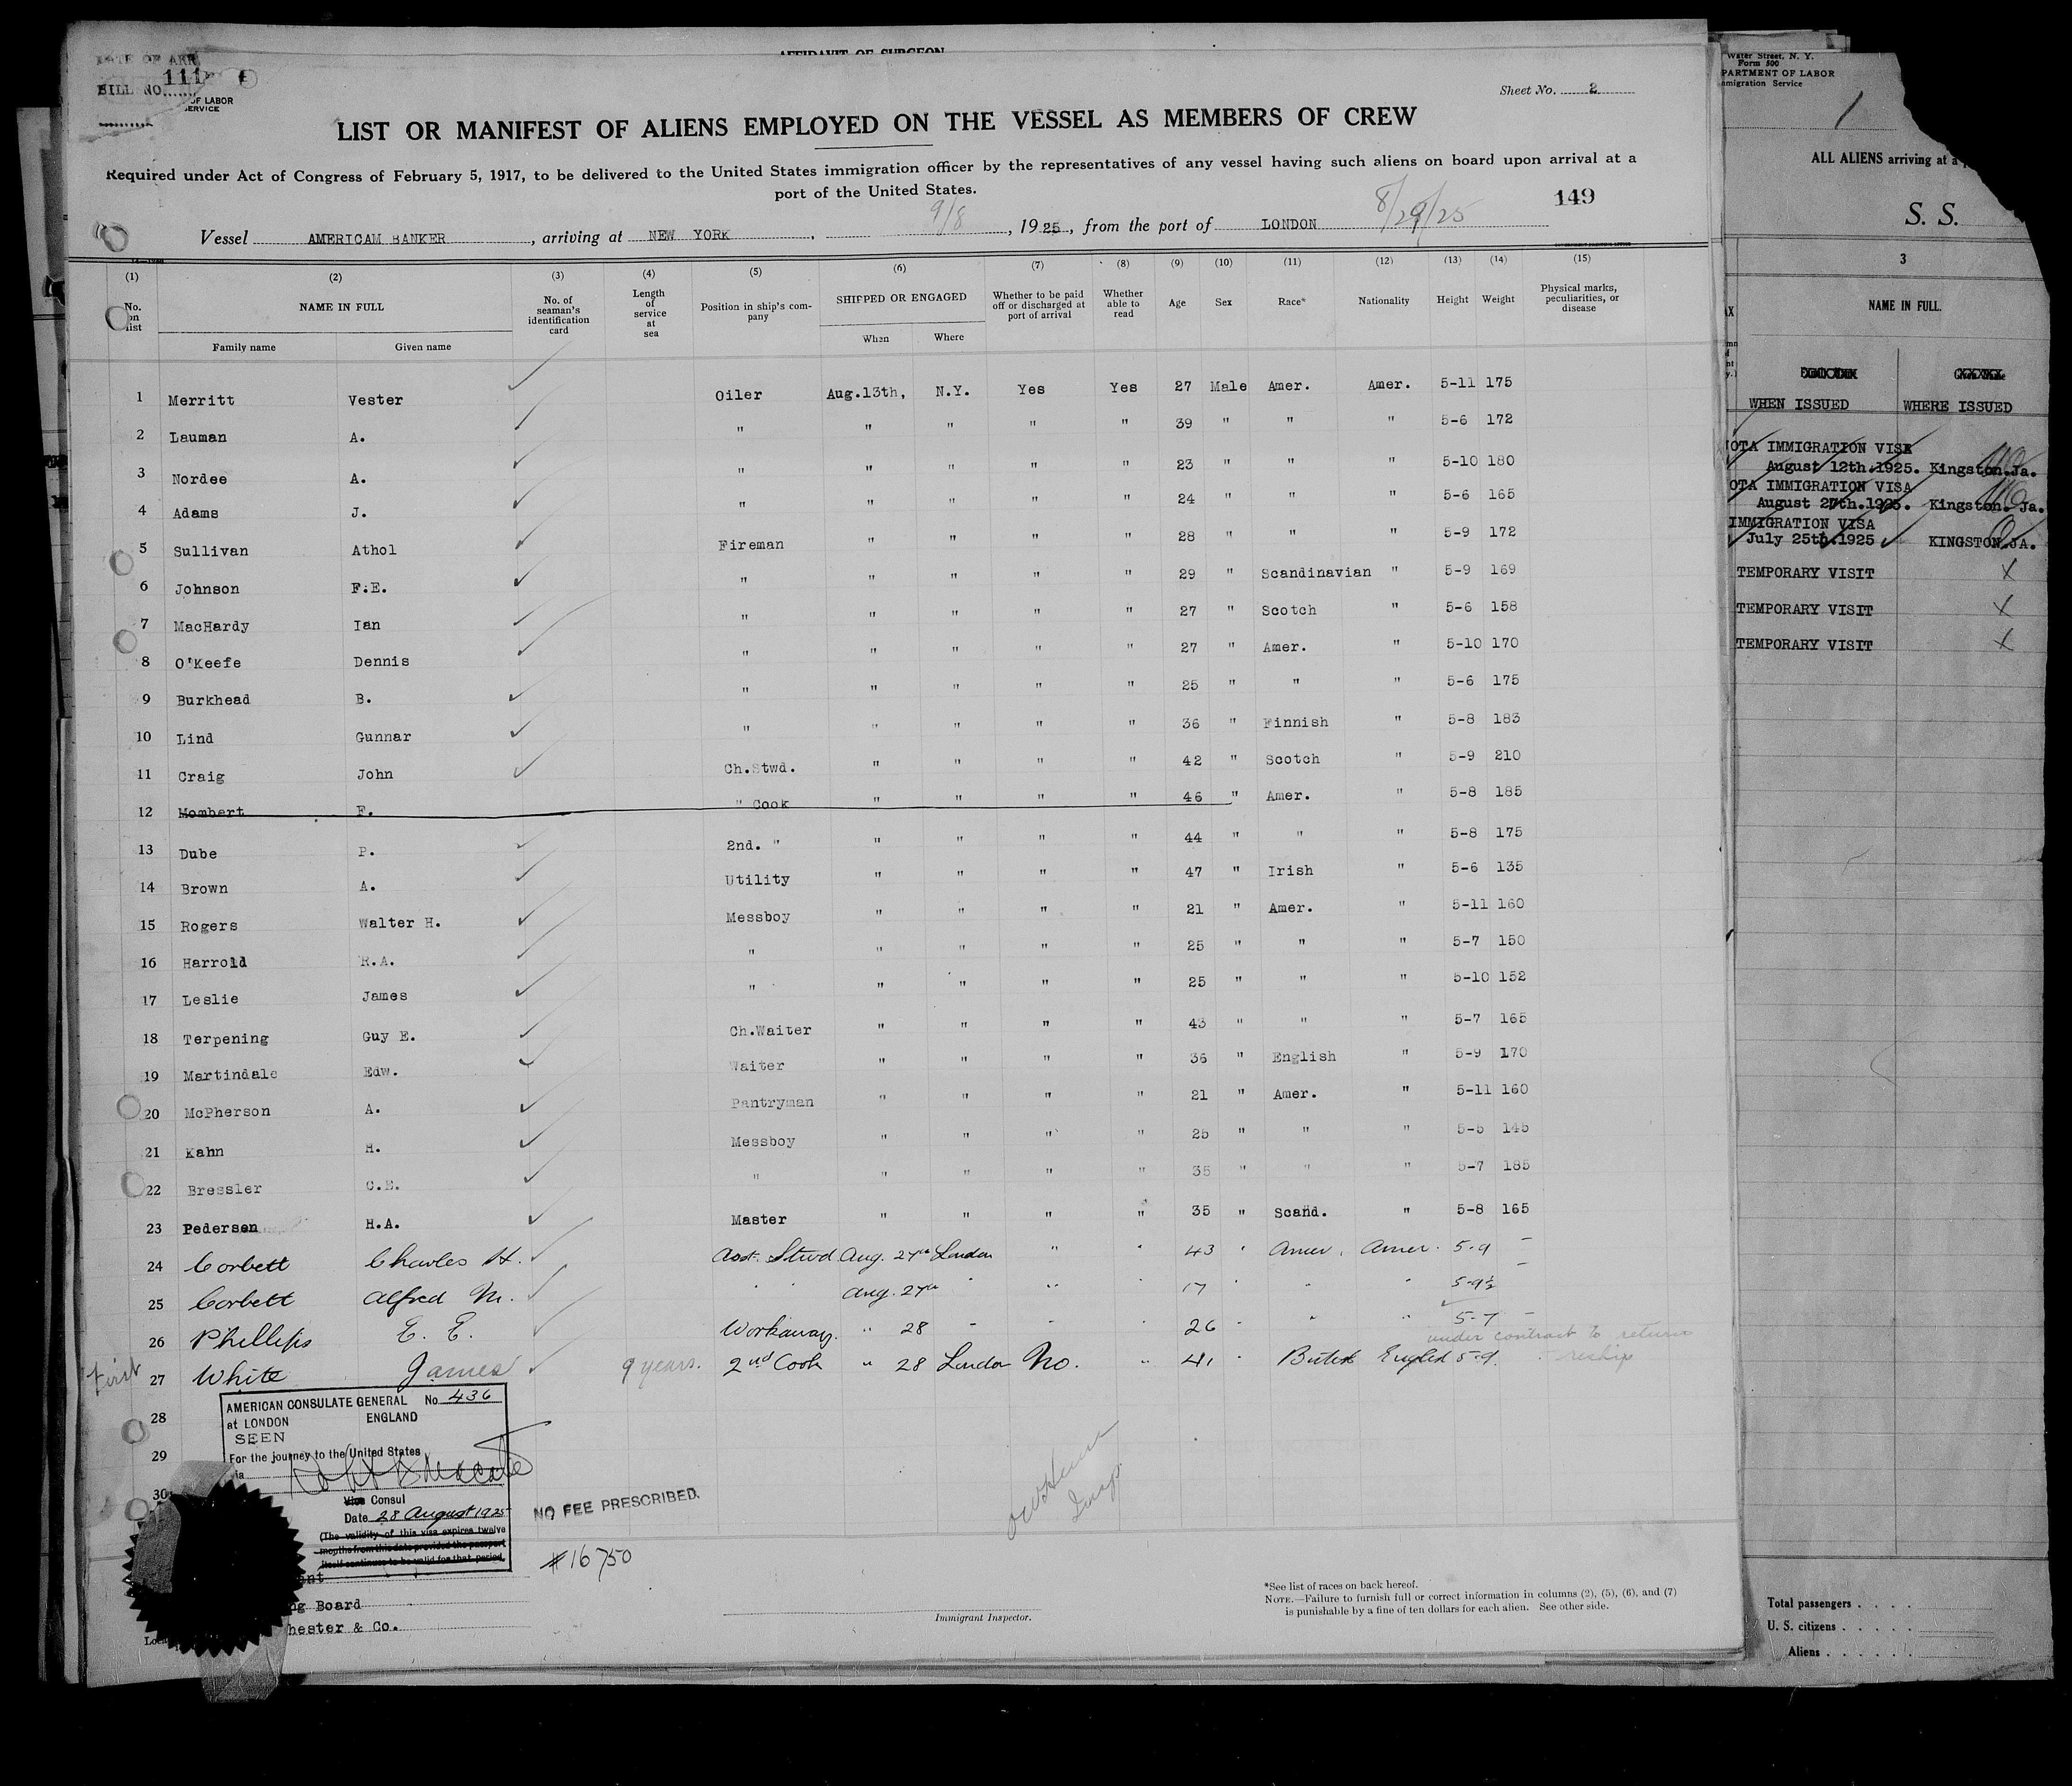 AFFIDAVIT OF SURGEON
DATE OF ARR
BILL NO. 111
OF LABOR
SERVICE
Sheet No. 2
LIST OR MANIFEST OF ALIENS EMPLOYED ON THE VESSEL AS MEMBERS OF CREW
Required under Act of Congress of February 5, 1917, to be delivered to the United States immigration officer by the representatives of any vessel having such aliens on board upon arrival at a
port of the United States.
149
Vessel AMERICAM BANKER, arriving at NEW YORK, 9/8, 1925, from the port of LONDON 8/29/25
(1) (2) (3) (4) (5) (6) (7) (8) (9) (10) (11) (12) (13) (14) (15)
No. on list NAME IN FULL No. of seaman's identification card Length of service at sea Position in ship's company SHIPPED OR ENGAGED Whether to be paid off or discharged at port of arrival Whether able to read Age Sex Race* Nationality Height Weight Physical marks, peculiarities, or disease
Family name Given name When Where
1 Merritt Vester Oiler Aug.13th, N.Y. Yes Yes 27 Male Amer. Amer. 5-11 175
2 Lauman A. " " " " " 39 " " " 5-6 172
3 Nordee A. " " " " " 23 " " " 5-10 180
4 Adams J. " " " " " 24 " " " 5-6 165
5 Sullivan Athol Fireman " " " " 28 " " " 5-9 172
6 Johnson F.E. " " " " " 29 " Scandinavian " 5-9 169
7 MacHardy Ian " " " " " 27 " Scotch " 5-6 158
8 O'Keefe Dennis " " " " " 27 " Amer. " 5-10 170
9 Burkhead B. " " " " " 25 " " " 5-6 175
10 Lind Gunnar " " " " " 36 " Finnish " 5-8 183
11 Craig John Ch.Stwd. " " " " 42 " Scotch " 5-9 210
12 Mombert F. " Cook " " " " 46 " Amer. " 5-8 185
13 Dube P. 2nd. " " " " " 44 " " " 5-8 175
14 Brown A. Utility " " " " 47 " Irish " 5-6 135
15 Rogers Walter H. Messboy " " " " 21 " Amer. " 5-11 160
16 Harrold R.A. " " " " " 25 " " " 5-7 150
17 Leslie James " " " " " 25 " " " 5-10 152
18 Terpening Guy E. Ch.Waiter " " " " 43 " " " 5-7 165
19 Martindale Edw. Waiter " " " " 36 " English " 5-9 170
20 McPherson A. Pantryman " " " " 21 " Amer. " 5-11 160
21 Kahn H. Messboy " " " " 25 " " " 5-5 145
22 Bressler C.E. " " " " " 35 " " " 5-7 185
23 Pedersen H.A. Master " " " " 35 " Scand. " 5-8 165
24 Corbett Charles H. Asst. Stwd Aug. 27th London " " 43 " Amer. Amer. 5-9 -
25 Corbett Alfred M. " " Aug. 27th " " " 17 " " " 5-9½ -
26 Phillips E. E. Workaway " 28 " " " 26 " " " 5-7 -
under contract to return
First 27 White James 9 years. 2nd Cook " 28 London No. " 41 " British 5-9. reship
28
29
30
AMERICAN CONSULATE GENERAL No. 436
at LONDON ENGLAND
SEEN
For the journey to the United States
Vice Consul
Date 28 August 1925
(The validity of this visa expires twelve
months from this date provided the passport
itself continues to be valid for that period.
NO FEE PRESCRIBED.
#16750
Insp.
ng Board
hester & Co.
Immigrant Inspector.
*See list of races on back hereof.
NOTE.—Failure to furnish full or correct information in columns (2), (5), (6), and (7)
is punishable by a fine of ten dollars for each alien. See other side.
Water Street, N. Y.
Form 500
PARTMENT OF LABOR
mmigration Service
1
ALL ALIENS arriving at a
S. S.
3
NAME IN FULL.
WHEN ISSUED WHERE ISSUED
OTA IMMIGRATION VISA
August 12th.1925. Kingston.Ja.
OTA IMMIGRATION VISA
August 27th.1925. Kingston. Ja.
IMMIGRATION VISA
July 25th.1925 KINGSTON.JA.
TEMPORARY VISIT X
TEMPORARY VISIT X
TEMPORARY VISIT X
Total passengers . . . .
U. S. citizens . . . . .
Aliens . . . . . .